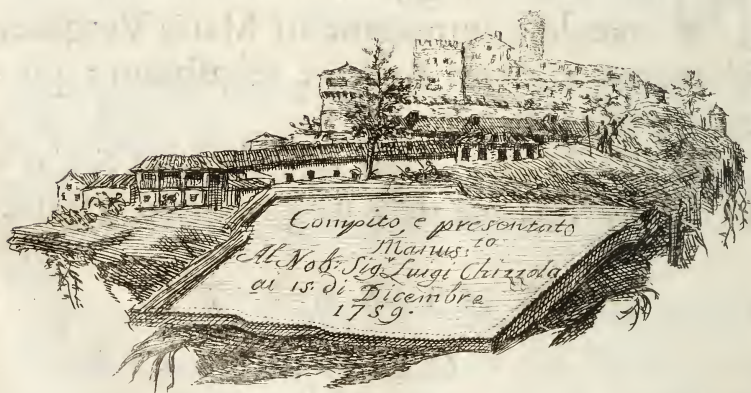 Compito, e presentato
Manus.to
Al Nob: Sig.r Luigi Chizzola
ai 15. di Dicembre
1759.